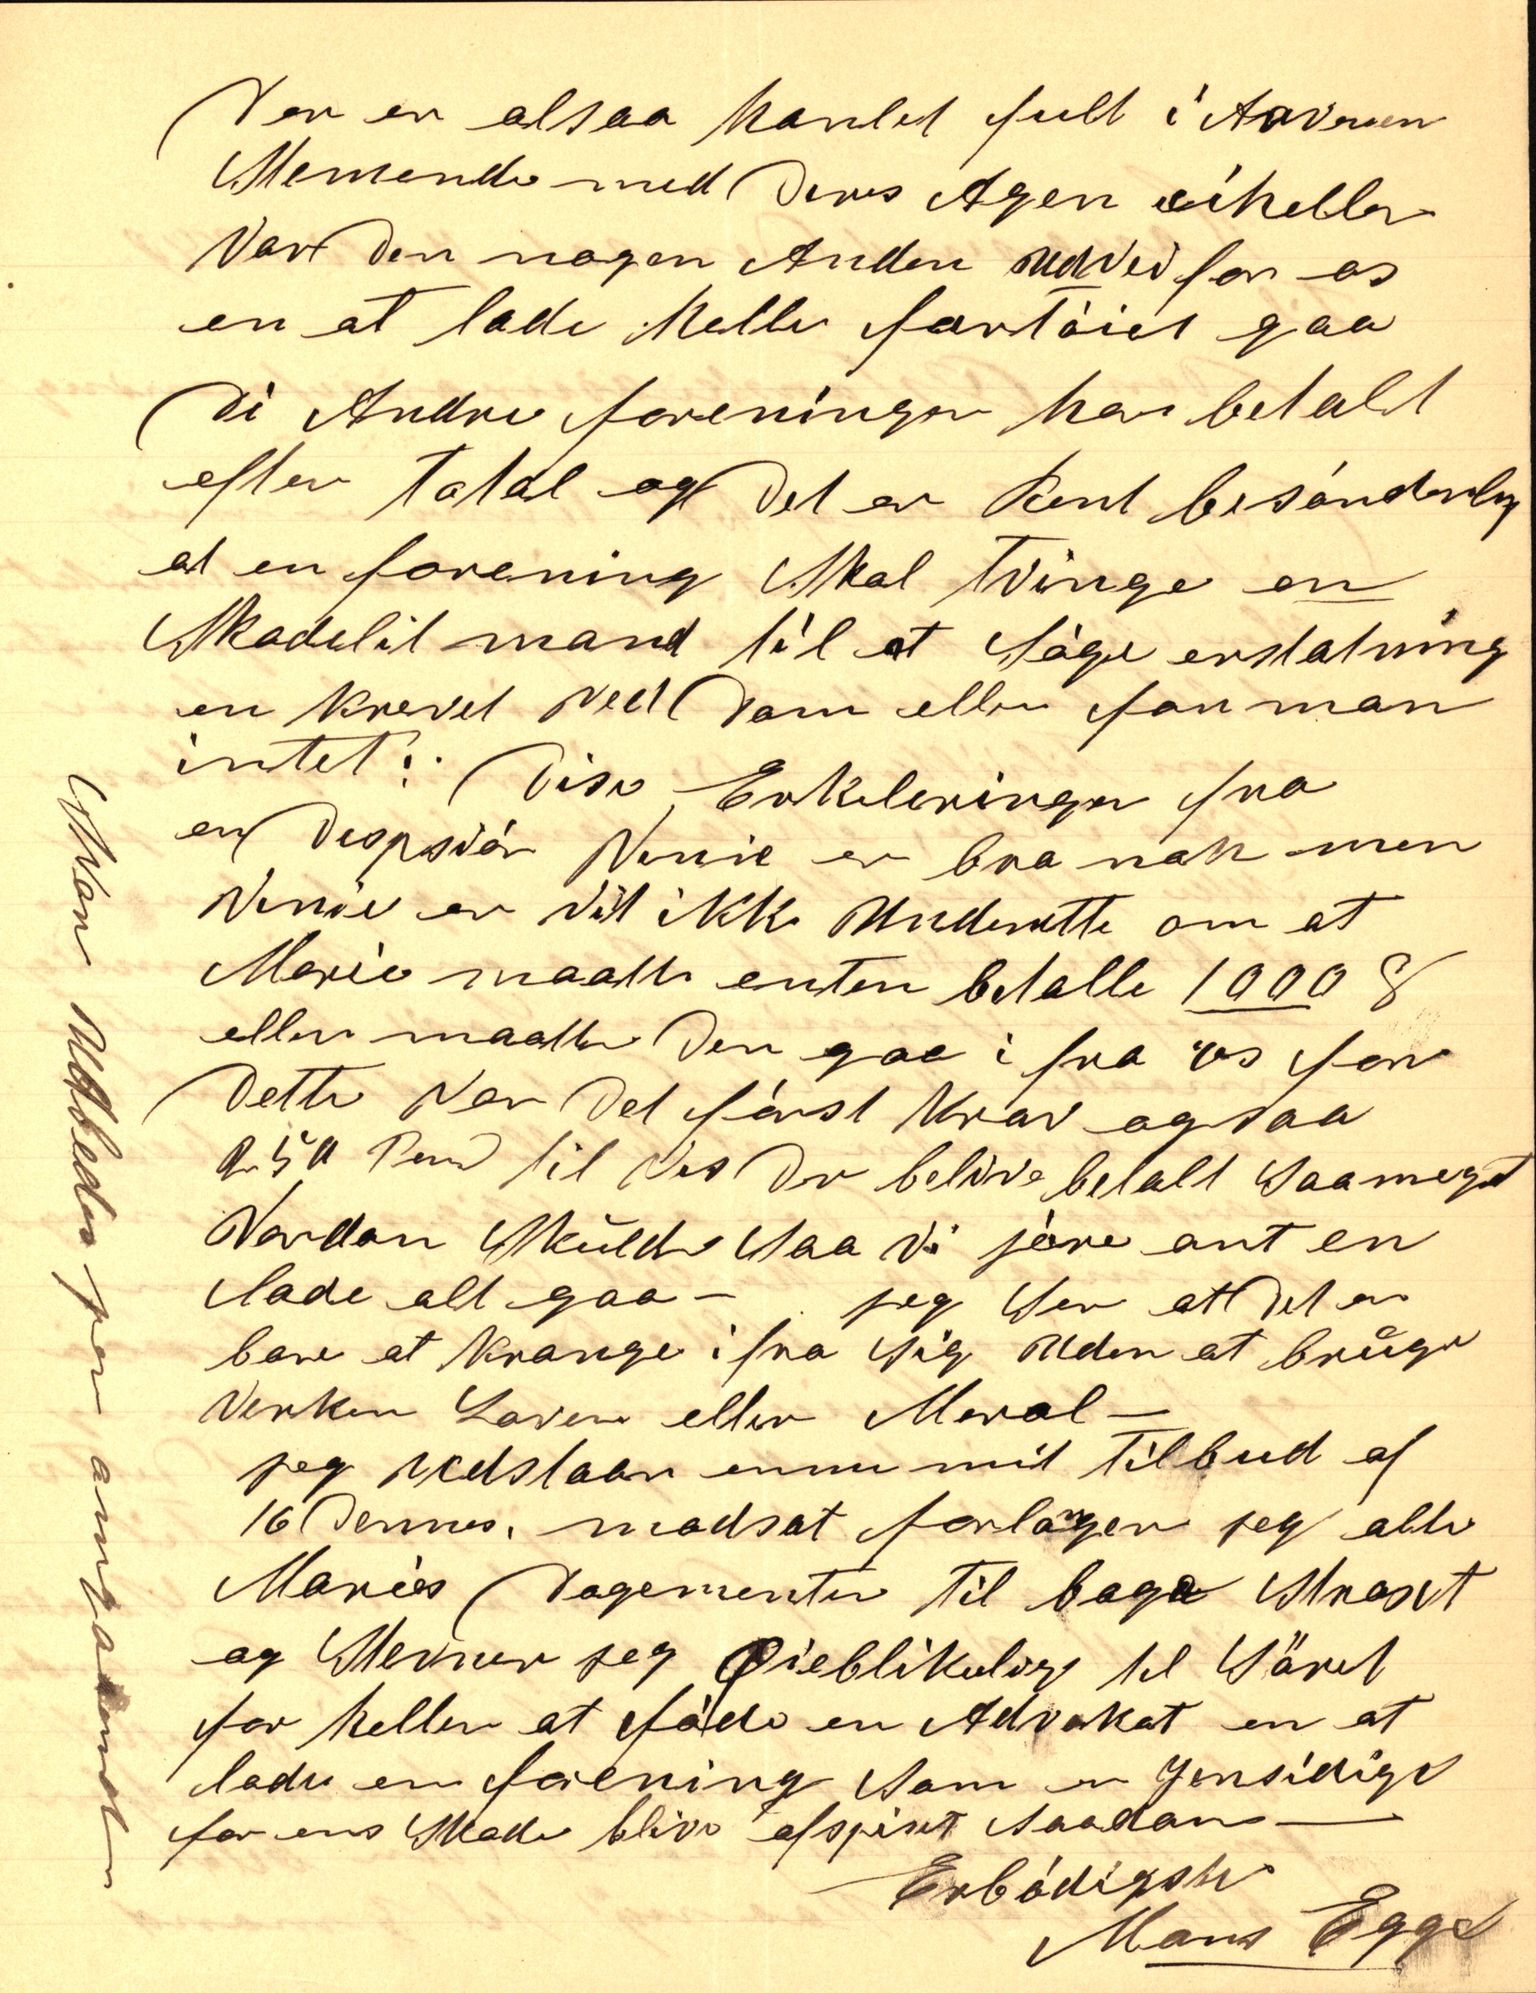 Der er altsaa handlet fult i Aaverens
stemende med Deres Agen eiheller
Var Der nogen Anden Udvei for os
en at lade helle fartöiet gaa
Di Andre foreninger har betalt
efter Total og Det er Rent besönderlig
at en forening skal Tvinge en
skadelit mand til at söge erstatning
en krevet ved Dom eller faar man
intet! Dise Erkeleringer fra
en Despsiör Venie er bra nok men
Venie er Vist ikke Underrette om at
Marie maatte enten betalle 1000 £
eller maatte Den gaa i fra os for
Dette Var Det först krav ogsaa
250 Pund til Vis Der belive betalt saameget
Vordan skulde saa Vi jöre ant en
lade alt gaa – jeg ser at Det er
bare at krange ifra sig Uden at bruge
Verken Loven eller Moral –
jeg vedstaar ennu mit Tilbud af
16 Dennes. modsat forlanger jeg alle
Maries Dogementer til bage straxt
og stevner jeg Øieblikelig til Söret
for heller at föde en Advokat en at
lade en forening som er Gensidige
for ens skade blive afspist saadan –
Erbödigste
Hans Egge
Svar Udbedes per omgaaende